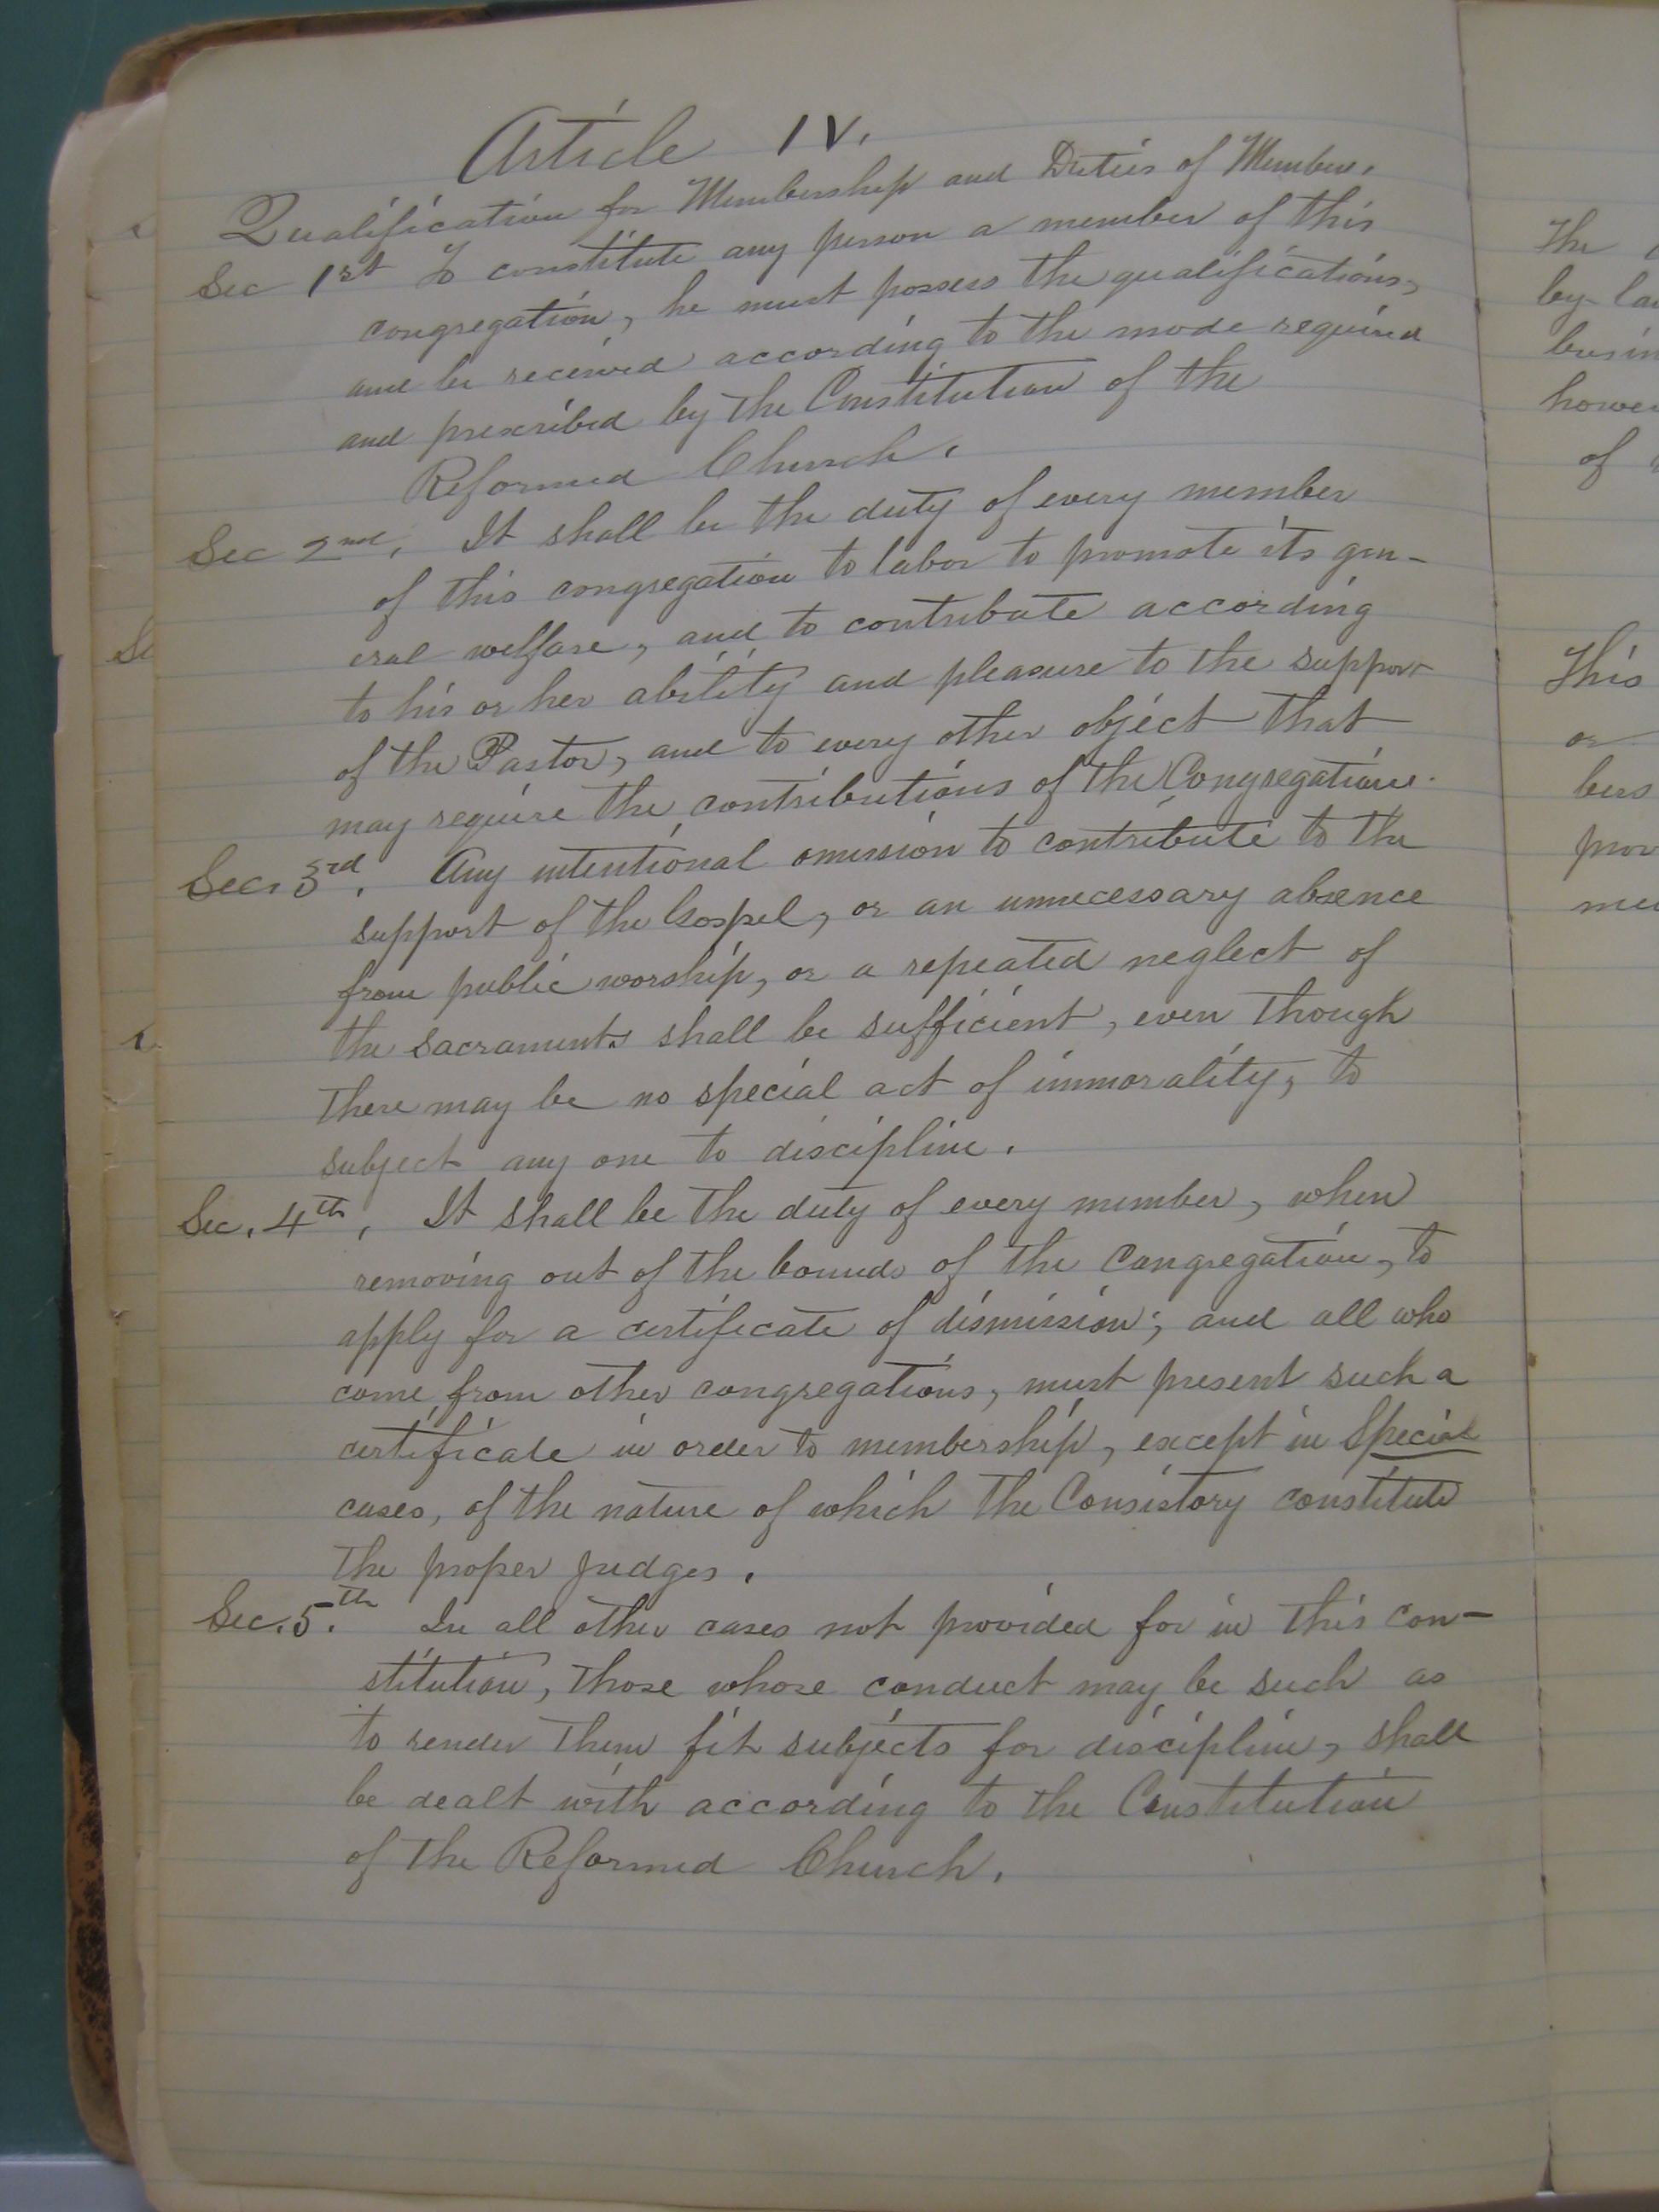 Article IV.
Qualification for Membership and Duties of Members.
Sec 1st To constitute any person a member of this
congregation, he must possess the qualifications,
and be received according to the mode required
and prescribed by the Constitution of the
Reformed Church.
Sec 2nd. It shall be the duty of every member
of this congregation to labor to promote its gen-
eral welfare, and to contribute according
to his or her ability and pleasure to the support
of the Pastor, and to every other object that
may require the contributions of the Congregation.
Sec. 3rd. Any intentional omission to contribute to the
support of the Gospel, or an unnecessary absence
from public worship, or a repeated neglect of
the sacraments shall be sufficient, even though
there may be no special act of immorality, to
subject any one to discipline.
Sec. 4th. It shall be the duty of every member, when
removing out of the bounds of the Congregation, to
apply for a certificate of dismission; and all who
come from other congregations, must present such a
certificate in order to membership, except in Special
cases, of the nature of which the Consistory constitute
the proper judges.
Sec. 5.th In all other cases not provided for in this con-
stitution, those whose conduct may be such as
to render them fit subjects for discipline, shall
be dealt with according to the Constitution
of the Reformed Church.
The
by-la
busin
howe
of
This
or
bers
pro
me